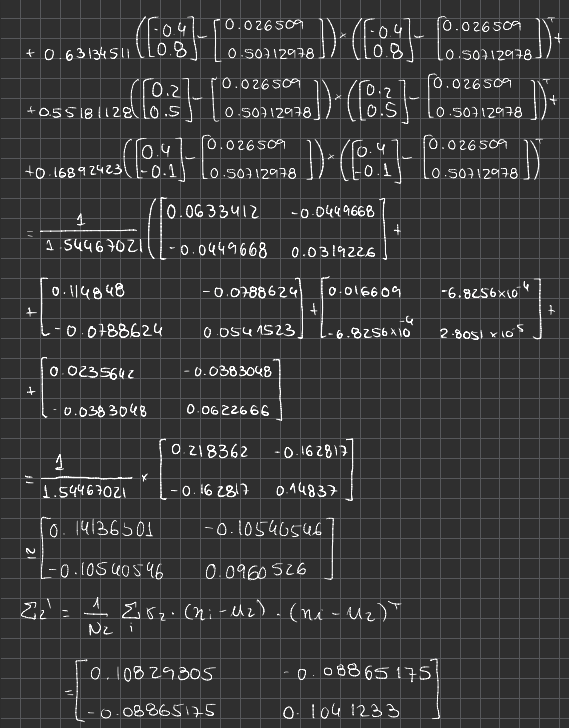 + 0.63134511 ([-0.4 0.8] - [0.026509 0.50712978]) × ([-0.4 0.8] - [0.026509 0.50712978])ᵀ +
+0.55181128 ([0.2 0.5] - [0.026509 0.50712978]) × ([0.2 0.5] - [0.026509 0.50712978])ᵀ +
+0.16892423 ([0.4 -0.1] - [0.026509 0.50712978]) × ([0.4 -0.1] - [0.026509 0.50712978])ᵀ
= 1/1.54467021 ([0.0633412 -0.0449668
-0.0449668 0.0319226] +
+ [0.114848 -0.0788624
-0.0788624 0.0541523] + [0.016609 -6.8256×10⁻⁴
-6.8256×10⁻⁴ 2.8051×10⁻⁵] +
+ [0.0235642 -0.0383048
-0.0383048 0.0622666]
= 1/1.54467021 × [0.218362 -0.162817
-0.162817 0.14837]
≃ [0.14136501 -0.10540546
-0.10540546 0.0960526]
Σ2' = 1/N2 Σi r2 · (xi - u2) · (xi - u2)ᵀ
= [0.10829305 -0.08865175
-0.08865175 0.1041233]